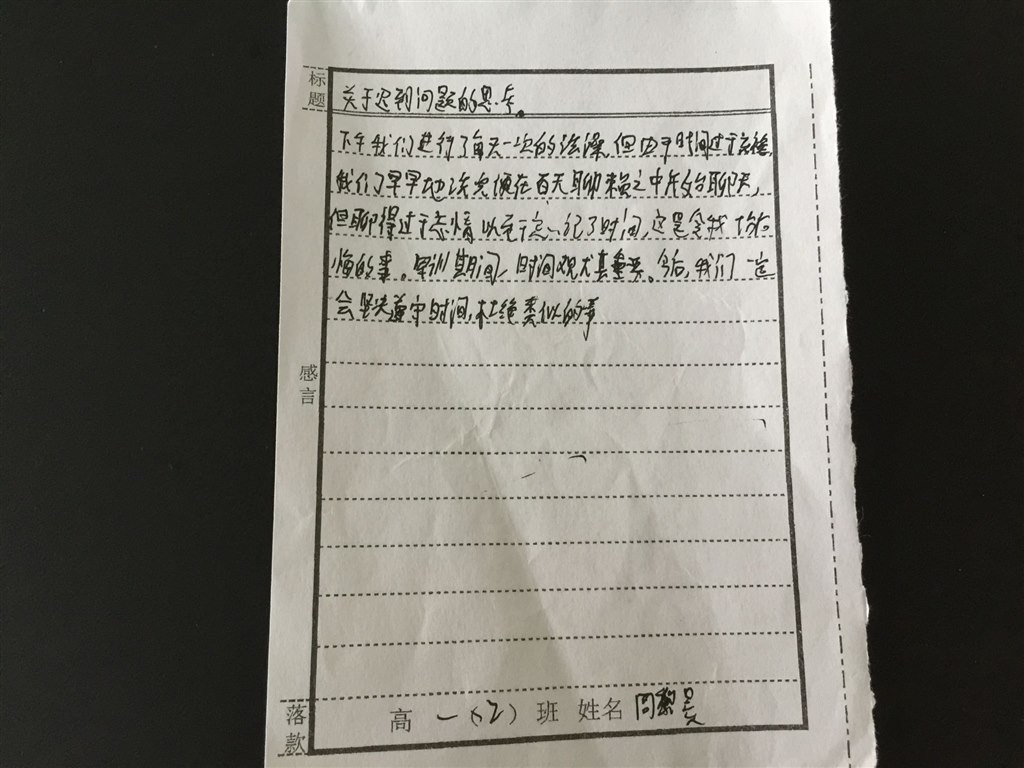 标题
关于迟到问题的思考。
下午我们进行了每天一次的洗澡,但由于时间过于充裕,
我们早早地洗完便在百无聊赖之中开始聊天,
但聊得过于忘情以至于忘记了时间,这是令我
悔的事。军训期间,时间观尤其重要。今后,我们一定
会坚决遵守时间,杜绝类似的事
感言
落款
高一(2)班 姓名 周黎昊